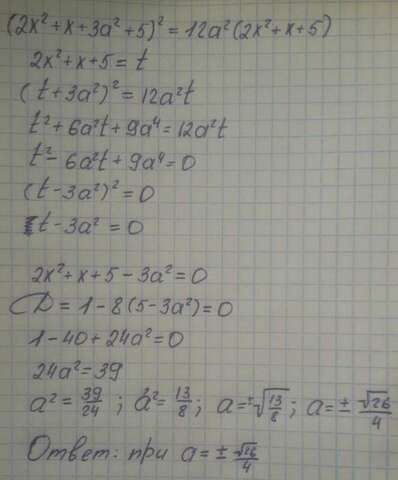 (2x² + x + 3a² + 5)² = 12a² (2x² + x + 5)
2x² + x + 5 = t
(t + 3a²)² = 12a²t
t² + 6a²t + 9a⁴ = 12a²t
t² - 6a²t + 9a⁴ = 0
(t - 3a²)² = 0
t - 3a² = 0
2x² + x + 5 - 3a² = 0
D = 1 - 8(5 - 3a²) = 0
1 - 40 + 24a² = 0
24a² = 39
a² = 39/24 ; a² = 13/8 ; a = ±√13/8 ; a = ± √26/4
Ответ: при a = ± √26/4